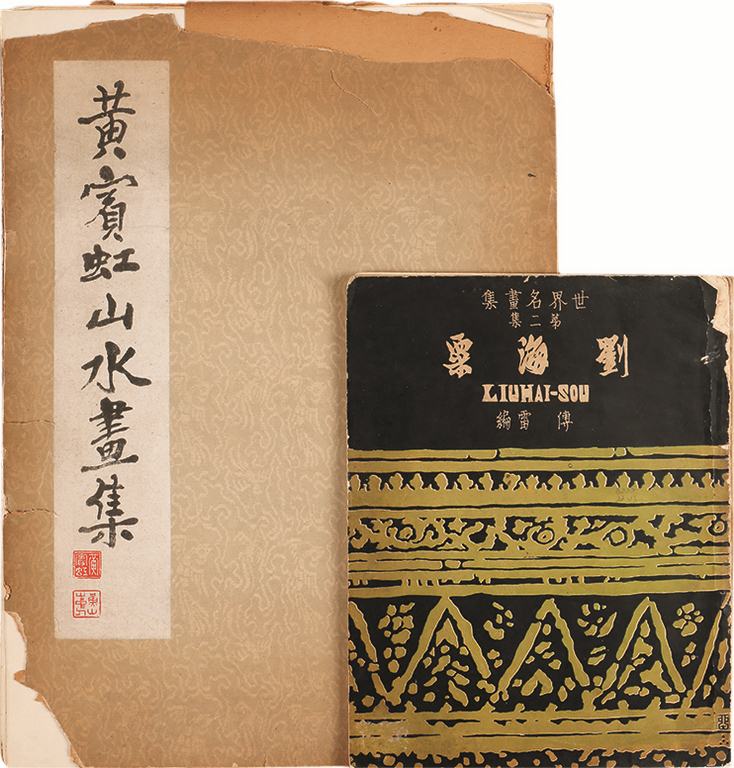 黃賓虹山水畫集
世界名畫集
第二集
劉海粟
LIUHAI-SOU
傅雷編